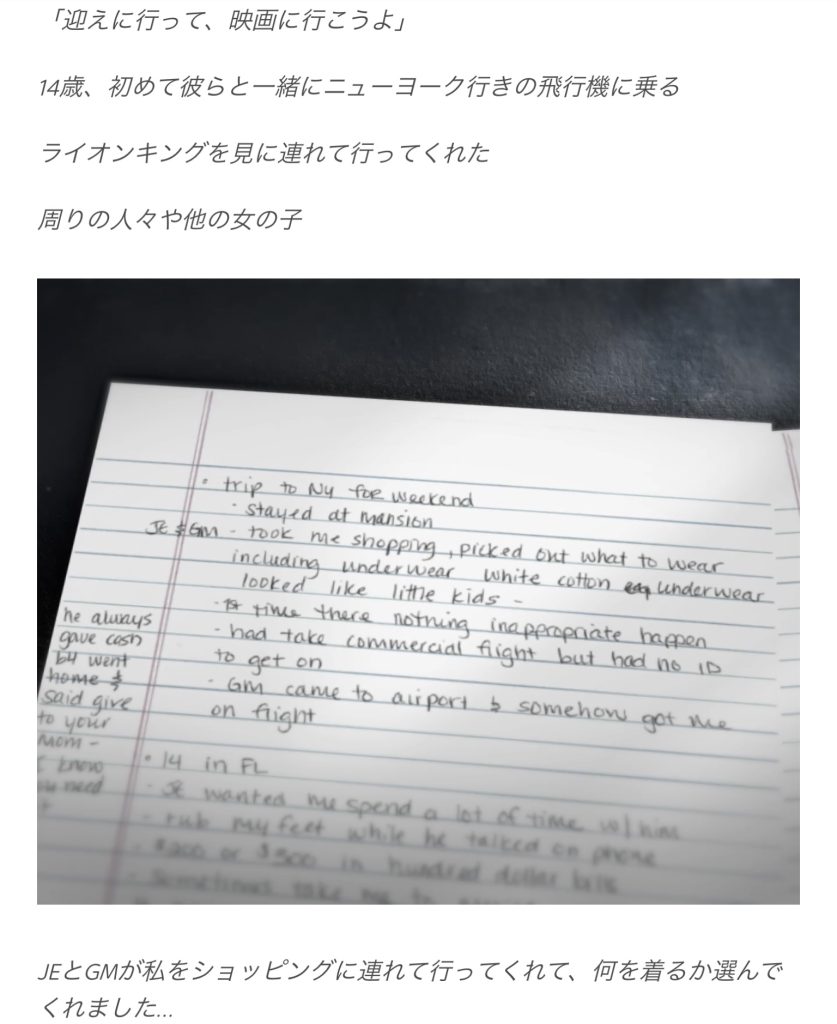 「迎えに行って、映画に行こうよ」
14歳、初めて彼らと一緒にニューヨーク行きの飛行機に乗る
ライオンキングを見に連れて行ってくれた
周りの人々や他の女の子
• trip to NY for weekend
- stayed at mansion
JE & GM - took me shopping, picked out what to wear
including underwear white cotton underwear
looked like little kids -
- time there nothing inappropriate happen
- had take commercial flight but had no ID
to get on
- GM came to airport & somehow got me
on flight
he always
gave cash
b4 went
home &
said give
to your
mom -
I know
you need
• 14 in FL
- JE wanted me spend a lot of time w/ him
- rub my feet while he talked on phone
- $200 or $300 in hundred dollar bills
- sometimes take me to
JEとGMが私をショッピングに連れて行ってくれて、何を着るか選んで
くれました...